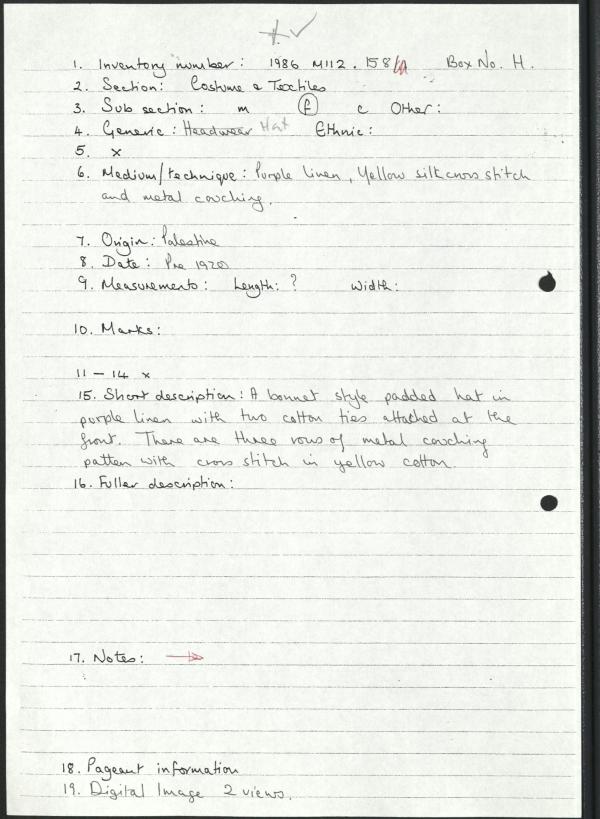 1. Inventory number: 1986 M112.158/ Box No. H.
2. Section: Costume & Textiles
3. Sub section: m f c Other:
4. Generic: Headwear Hat Ethnic:
5. x
6. Medium/technique: Purple linen, Yellow silk cross stitch
and metal couching.
7. Origin: Palestine
8. Date: Pre 1920
9. Measurements: Length: ? Width:
10. Marks:
11 – 14 x
15. Short description: A bonnet style padded hat in
purple linen with two cotton ties attached at the
front. There are three rows of metal couching
patten with cross stitch in yellow cotton.
16. Fuller description:
17. Notes: →
18. Pageant information
19. Digital Image 2 views.